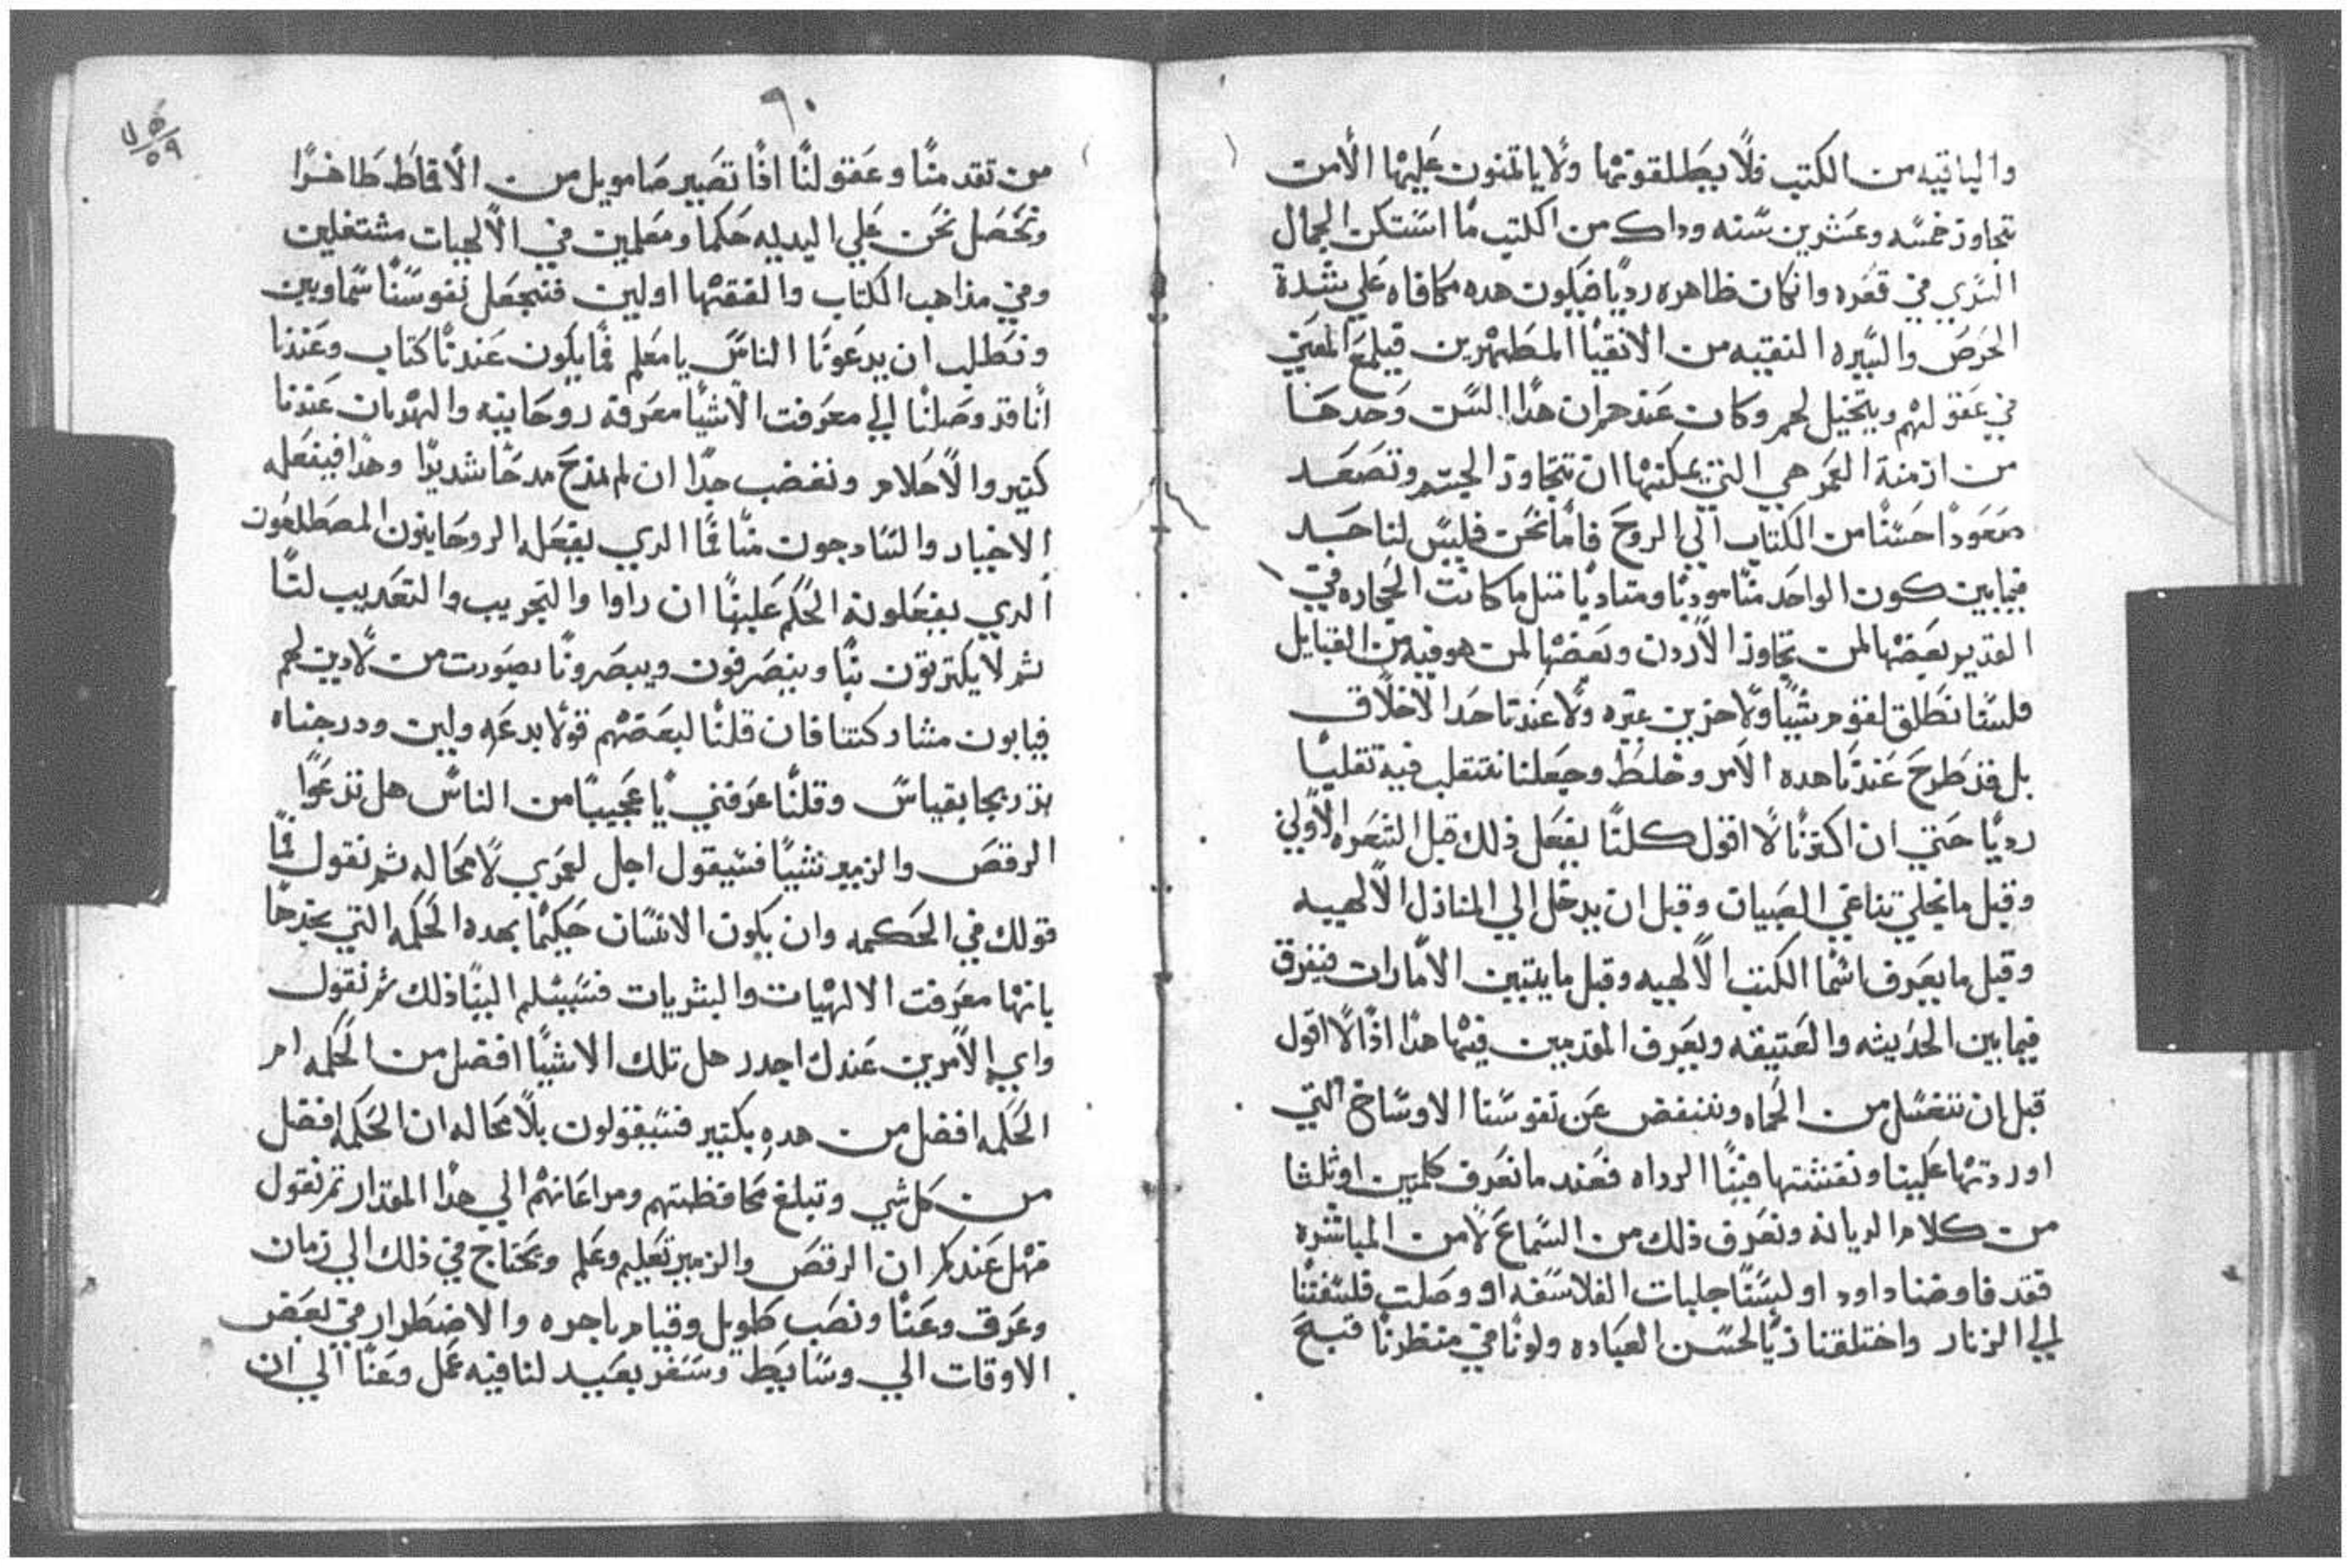 والباقيه من الكتب فلا يطلقونها ولا ياتمنون عليها الا من
تتجاوز خمسه وعشرين سنه وداك من الكتب ما استكن الجمال
السري في قعره وان كان ظاهره رديا فيكون هده مكافاه علي شدة
الحرص والسيره النقيه من الانقيا المطهرين فيلمع المعني
في عقولهم ويتخيل لهم وكان عندهم ان هدا السن وحدها
من ازمنة العمر هي التي يمكنها ان تتجاوز الجسم وتصعد
صعودا حسنا من الكتاب الي الروح فاما نحن فليس لنا حد
فيما بين كون الواحد منا مودبا ومتادبا متل ما كانت الحجاره في
القديم بعضها لمن تجاوز الاردن وبعضها لمن هو فيه من القبايل
فلسنا نطلق لقوم شيا ولا حزين عيره ولا عندنا حد الاخلاق
بل قد طرح عندنا هده الامر وخلط وجعلنا نتقلب فيه تقلبا
رديا حتي ان اكترنا لا اقول كلنا يفعل ذلك قبل الشعره الاولي
وقبل ما نخلي تناغي الصبيان وقبل ان يدخل الي المنازل الالهيه
وقبل ما يعرف اسما الكتب الالهيه وقبل ما يتبين الامارات فيفرق
فيما بين الحديثه والعتيقه ويعرف المقدمين فيها هدا اذا لا اقول
قبل ان نتغسل من الحماه وننفض عن نفوسنا الاوساخ التي
اوردتها علينا ونقشتها فينا الرداه فعند ما نعرف كلمتين او ثلثا
من كلام الديانه ونعرف ذلك من السماع لا من المباشره
فقد فاوضنا داود او لبسنا جلبات الفلاسفه او وصلت فلسفتنا
الي الزنار واختلقنا زيا لحسن العباده ولونا في منظرنا فتبح
٦٠
من تقدمنا وعقولنا افا تصير صامويل من الاقاط طاهرا
ونحصل نحن علي البديه حكما ومعلمين في الالهيات مشتغلين
وفي مذاهب الكتاب والفقها اولين فنجعل نفوسنا سماويين
ونطلب ان يدعونا الناس يا معلم فما يكون عندنا كتاب وعندنا
انا قد وصلنا الي معرفت الاشيا معرفه روحانيه والهديان عندنا
كتير والاحلام ونغضب جدا ان لم نمدح مدحا شديدا وهدا فيفعله
الاخيار والسادجون منا فما الدي يفعله الروحانيون المصطلعون
الدي يفعلونه الحكم علينا ان راوا والتجريب والتعديب لنا
ثم لا يكترتون بنا وينصرفون ويبصرونا بصورت من لا دين لهم
فيابون مشاركتنا فان قلنا لبعضهم قولا بدعه ولين ودرجناه
بتدريجا بقياس وقلنا عرفني يا عجيبا من الناس هل تدعوا
الرقص والزمير شيا فسيقول اجل لعمري لا محاله ثم نقول فما
قولك في الحكمه وان يكون الانسان حكيما بهده الحكمه التي نحدها
بانها معرفت الالهيات والبشريات فسيسلم الينا ذلك ثم نقول
واي الامرين عندك اجدر هل تلك الاشيا افضل من الحكمه ام
الحكمه افضل من هده بكتير فسيقولون بلا محاله ان الحكمه افضل
من كل شي وتبلغ محافظتهم ومراعاتهم الي هدا المقدار تم نقول
فهل عندكم ان الرقص والزمير تعليم وعلم ويحتاج في ذلك الي زمان
وعرق وعنا ونصب طويل وقيام باجره والاضطرار في بعض
الاوقات الي وسايط وسفر بعيد لنا فيه عمل وعنا الي ان